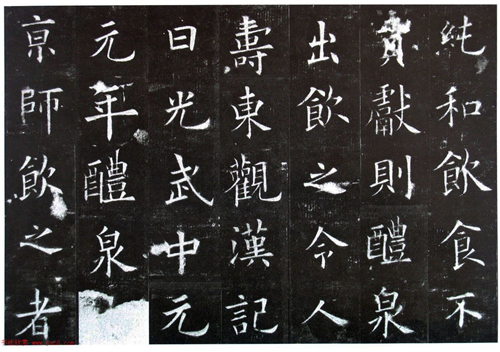 純和飲食不
貢獻則醴泉
出飲之令人
壽東觀漢記
曰光武中元
元年醴泉
京師飲之者